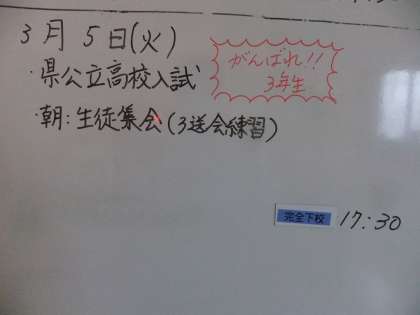 3月 5日(火)
・県公立高校入試
がんばれ!!
3年生
・朝:生徒集会(3送会練習)
完全下校 17:30